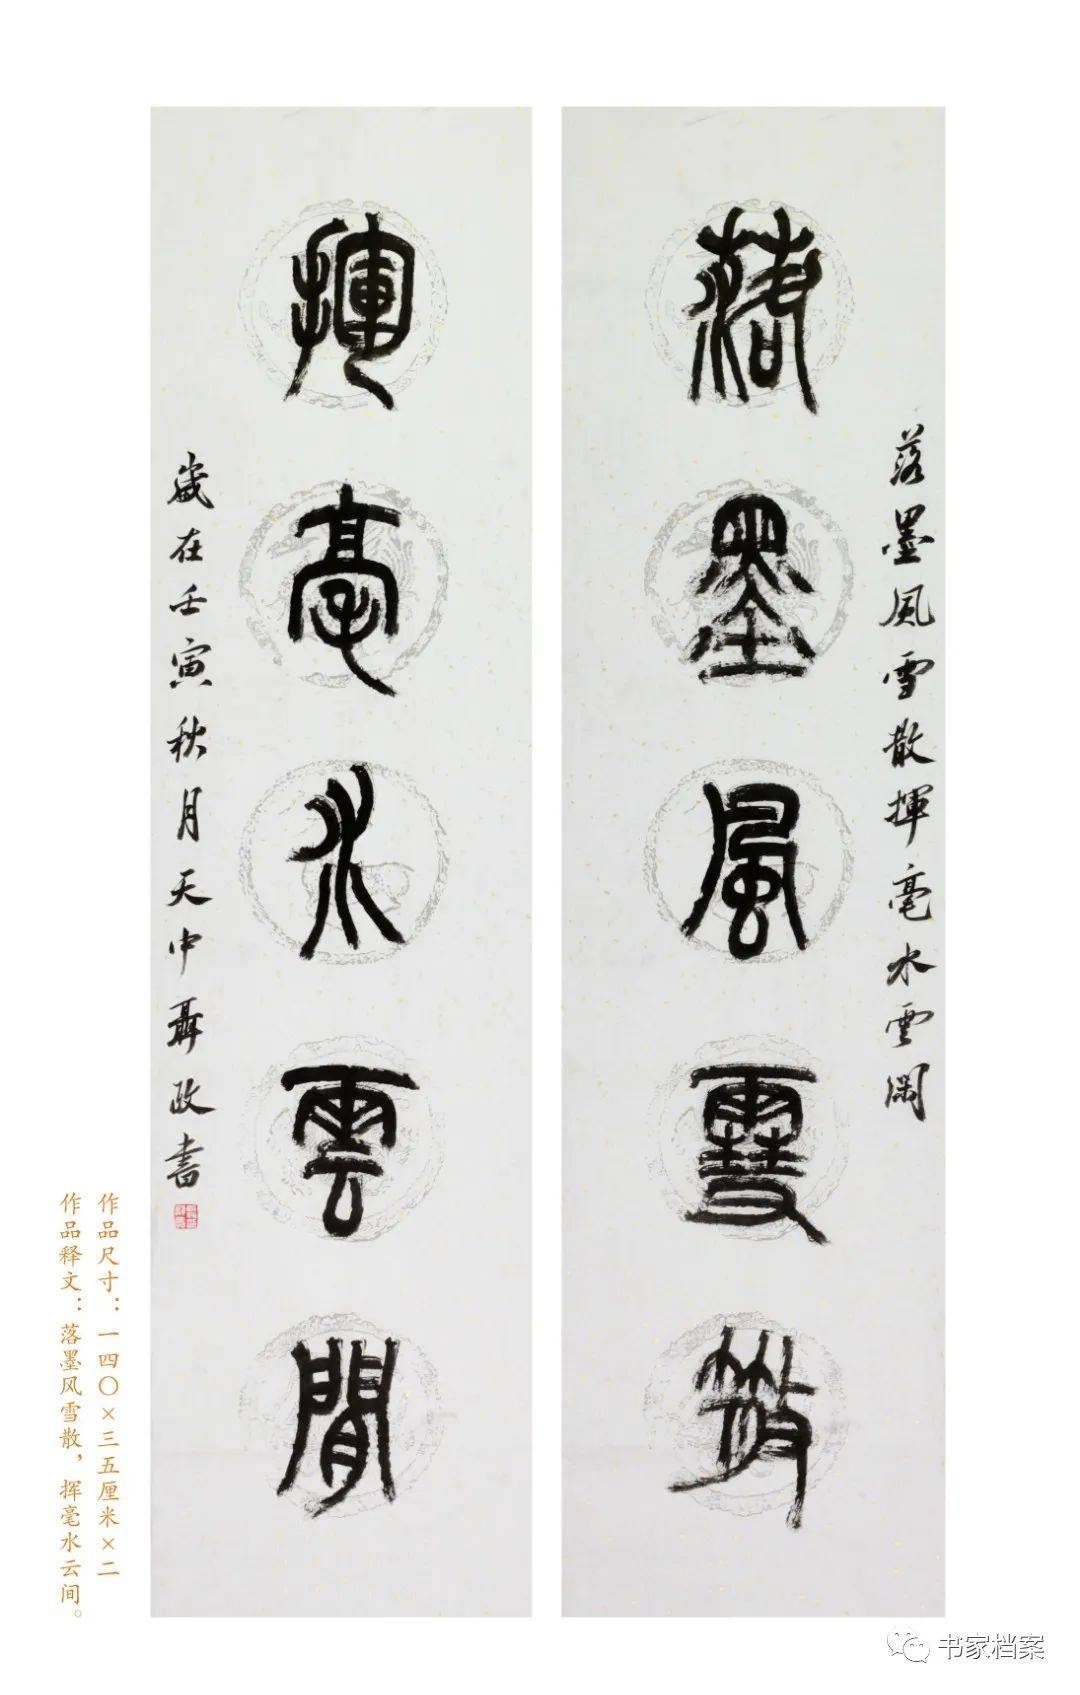 落墨風雪散揮毫水雲閒
落墨風雪散
揮毫水雲閒
歲在壬寅秋月天中聶政書
作品尺寸：一四〇×三五厘米×二
作品释文：落墨风雪散，挥毫水云间。
书家档案